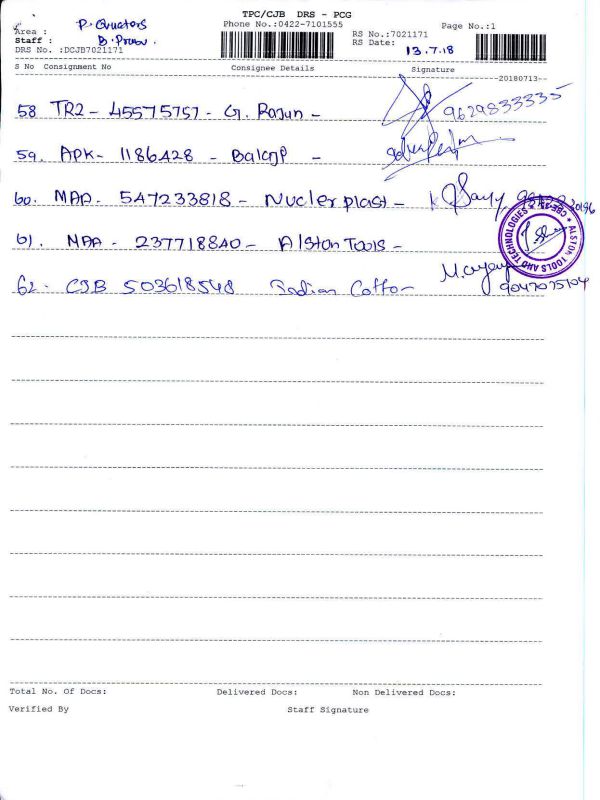 TPC/CJB DRS - PCG
Area :
Phone No.:0422-7101555
Page No.:1
Staff :
RS No.:7021171
DRS No. :DCJB7021171
RS Date: 13.7.18
S No Consignment No Consignee Details Signature
20180713
58 TR2 - 45575757 - G. Rajun -
9629833335
59. APK - 1186428 - Balaji -
60. MAA - 547233818 - Nucler plast -
61. MAA - 237718840 - Alston Tools -
ALSTON TOOLS AND TECHNOLOGIES * CBE-45 *
62. CJB 503618548 Indian Cotton
9047075104
Total No. Of Docs: Delivered Docs: Non Delivered Docs:
Verified By Staff Signature